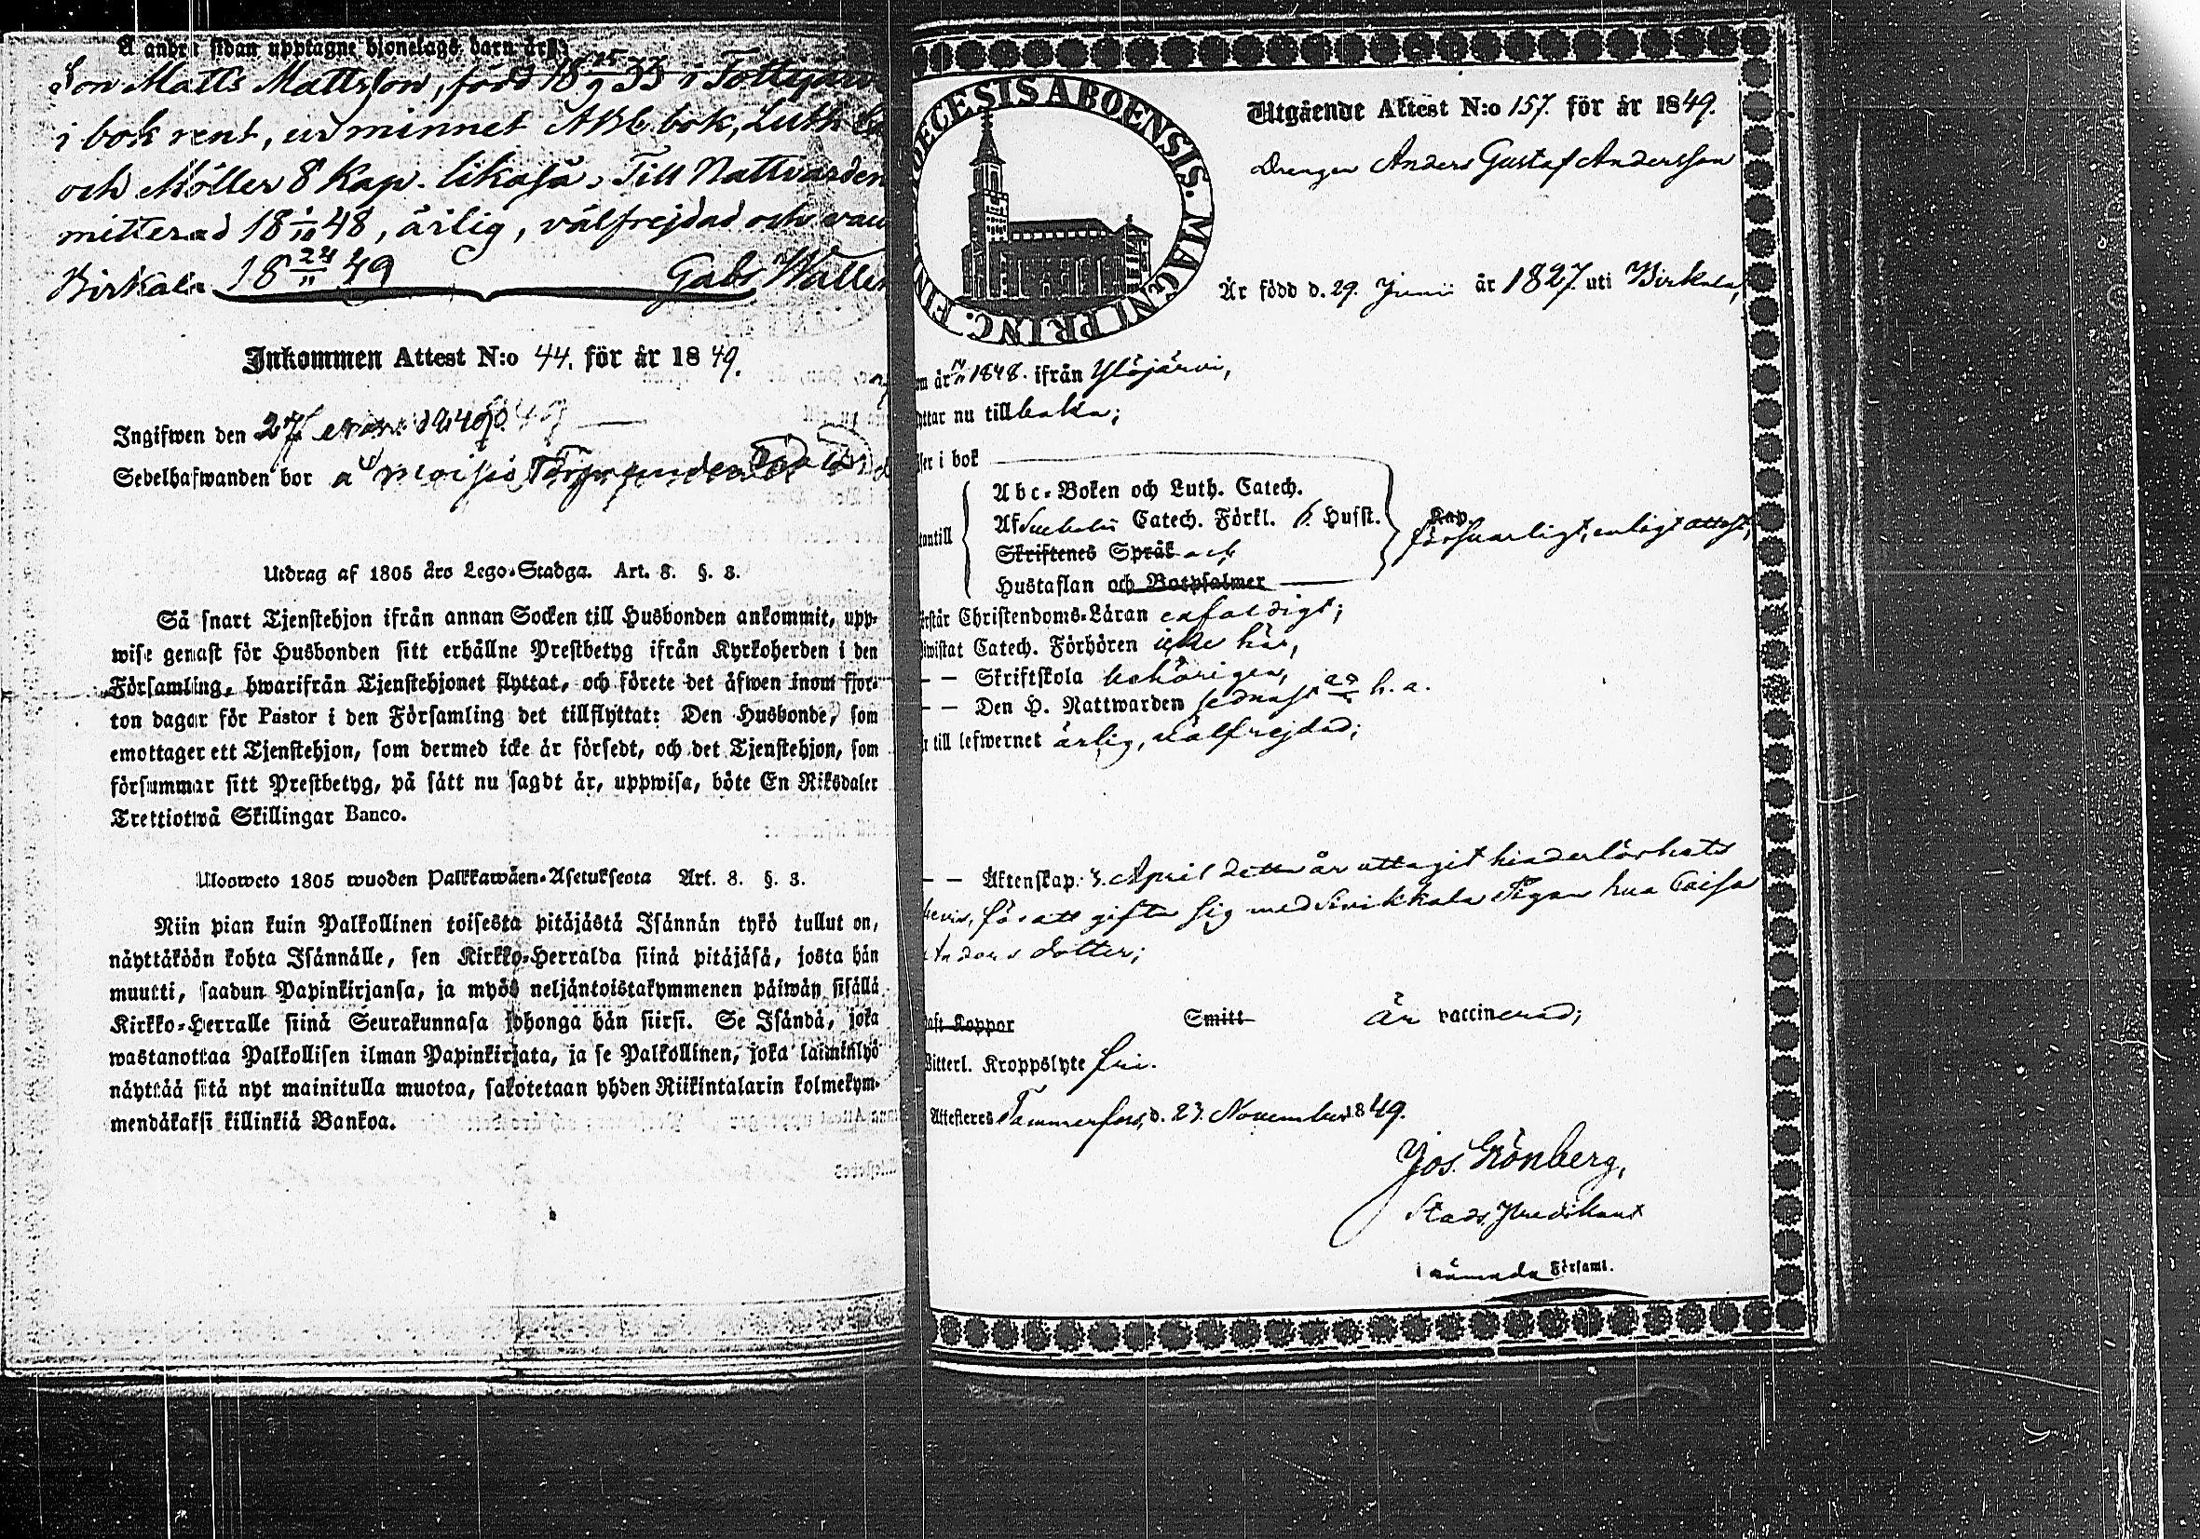 Å andra sidan upptagne hjonelags barn äro:
Son Matts Mattsson, född 18 25/9 33 i
i bok rent, ur minnet ABC bok, Luth
och Möller 8 Kap. likaså. Till Nattvarden
mitterad 18 1/10 48, ärlig, välfrejdad och
Birkala 18 24/11 49 Gabr. Wallen
Inkommen Attest N:o 44. för år 1849.
Ingifwen den 27
Sedelhafwanden bor
Utdrag af 1805 års Lego-Stadga. Art. 8. §. 3.
Så snart Tjenstehjon ifrån annan Socken till Husbonden ankommit, upp-
wise genast för Husbonden sitt erhållne Prestbetyg ifrån Kyrkoherden i den
Församling, hwarifrån Tjenstehjonet flyttat, och förete det äfwen inom fjor-
ton dagar för Pastor i den Församling det tillflyttat: Den Husbonde, som
emottager ett Tjenstehjon, som dermed icke är försedt, och det Tjenstehjon, som
försummar sitt Prestbetyg, på sätt nu sagdt är, uppwisa, böte En Riksdaler
Trettiotwå Skillingar Banco.
Ulosweto 1805 wuoden Palkkawäen-Asetuksesta Art. 8. §. 3.
Niin pian kuin Palkollinen toisesta pitäjästä Isännän tykö tullut on,
näyttäköön kohta Isännälle, sen Kirkko-Herralda siinä pitäjäsä, josta hän
muutti, saadun Papinkirjansa, ja myös neljäntoistakymmenen päiwän sisällä
Kirkko-Herralle siinä Seurakunnasa johonga hän siirsi. Se Isändä, joka
wastanottaa Palkollisen ilman Papinkirjata, ja se Palkollinen, joka laiminlyö
näyttää sitä nyt mainitulla muotoa, sakotetaan yhden Riikintalarin kolmekym-
mendäkaksi killinkiä Bankoa.
DIOECESIS ABOENSIS. MAGNI PRINC. FINL
Utgående Attest N:o 157. för år 1849.
Drengen Anders Gustaf Andersson
Är född d. 29. Junii år 1827. uti Birkala,
om år 1848. ifrån Ylöjärvi,
yttar nu tillbaka;
ser i bok
utantill
Abc-Boken och Luth. Catech.
Af Svebelii Catech. Förkl. 6. Hufst.
Skriftenes Språk och
Hustaflan och Botpsalmer
Kap.
försvarligt, enligt attest,
örstår Christendoms-Läran enfaldigt;
iwistat Catech. Förhören icke här,
— — Skriftskola behörigen,
— — Den H. Nattwarden sednast h. a.
r till lefwernet ärlig, välfrejdad;
— — Äktenskap: 3. April detta år uttagit hinderlöshets
bevis, för att gifta sig med Sinikkala Pigan hua Caisa
Anders dotter;
haft Koppor Smitt Är vaccinerad;
Witterl. Kroppslyte fri.
Attesteres Tammerfors, d. 23. November 1849.
Jos. Grönberg,
Stads Predikant
i nämnda Församl.